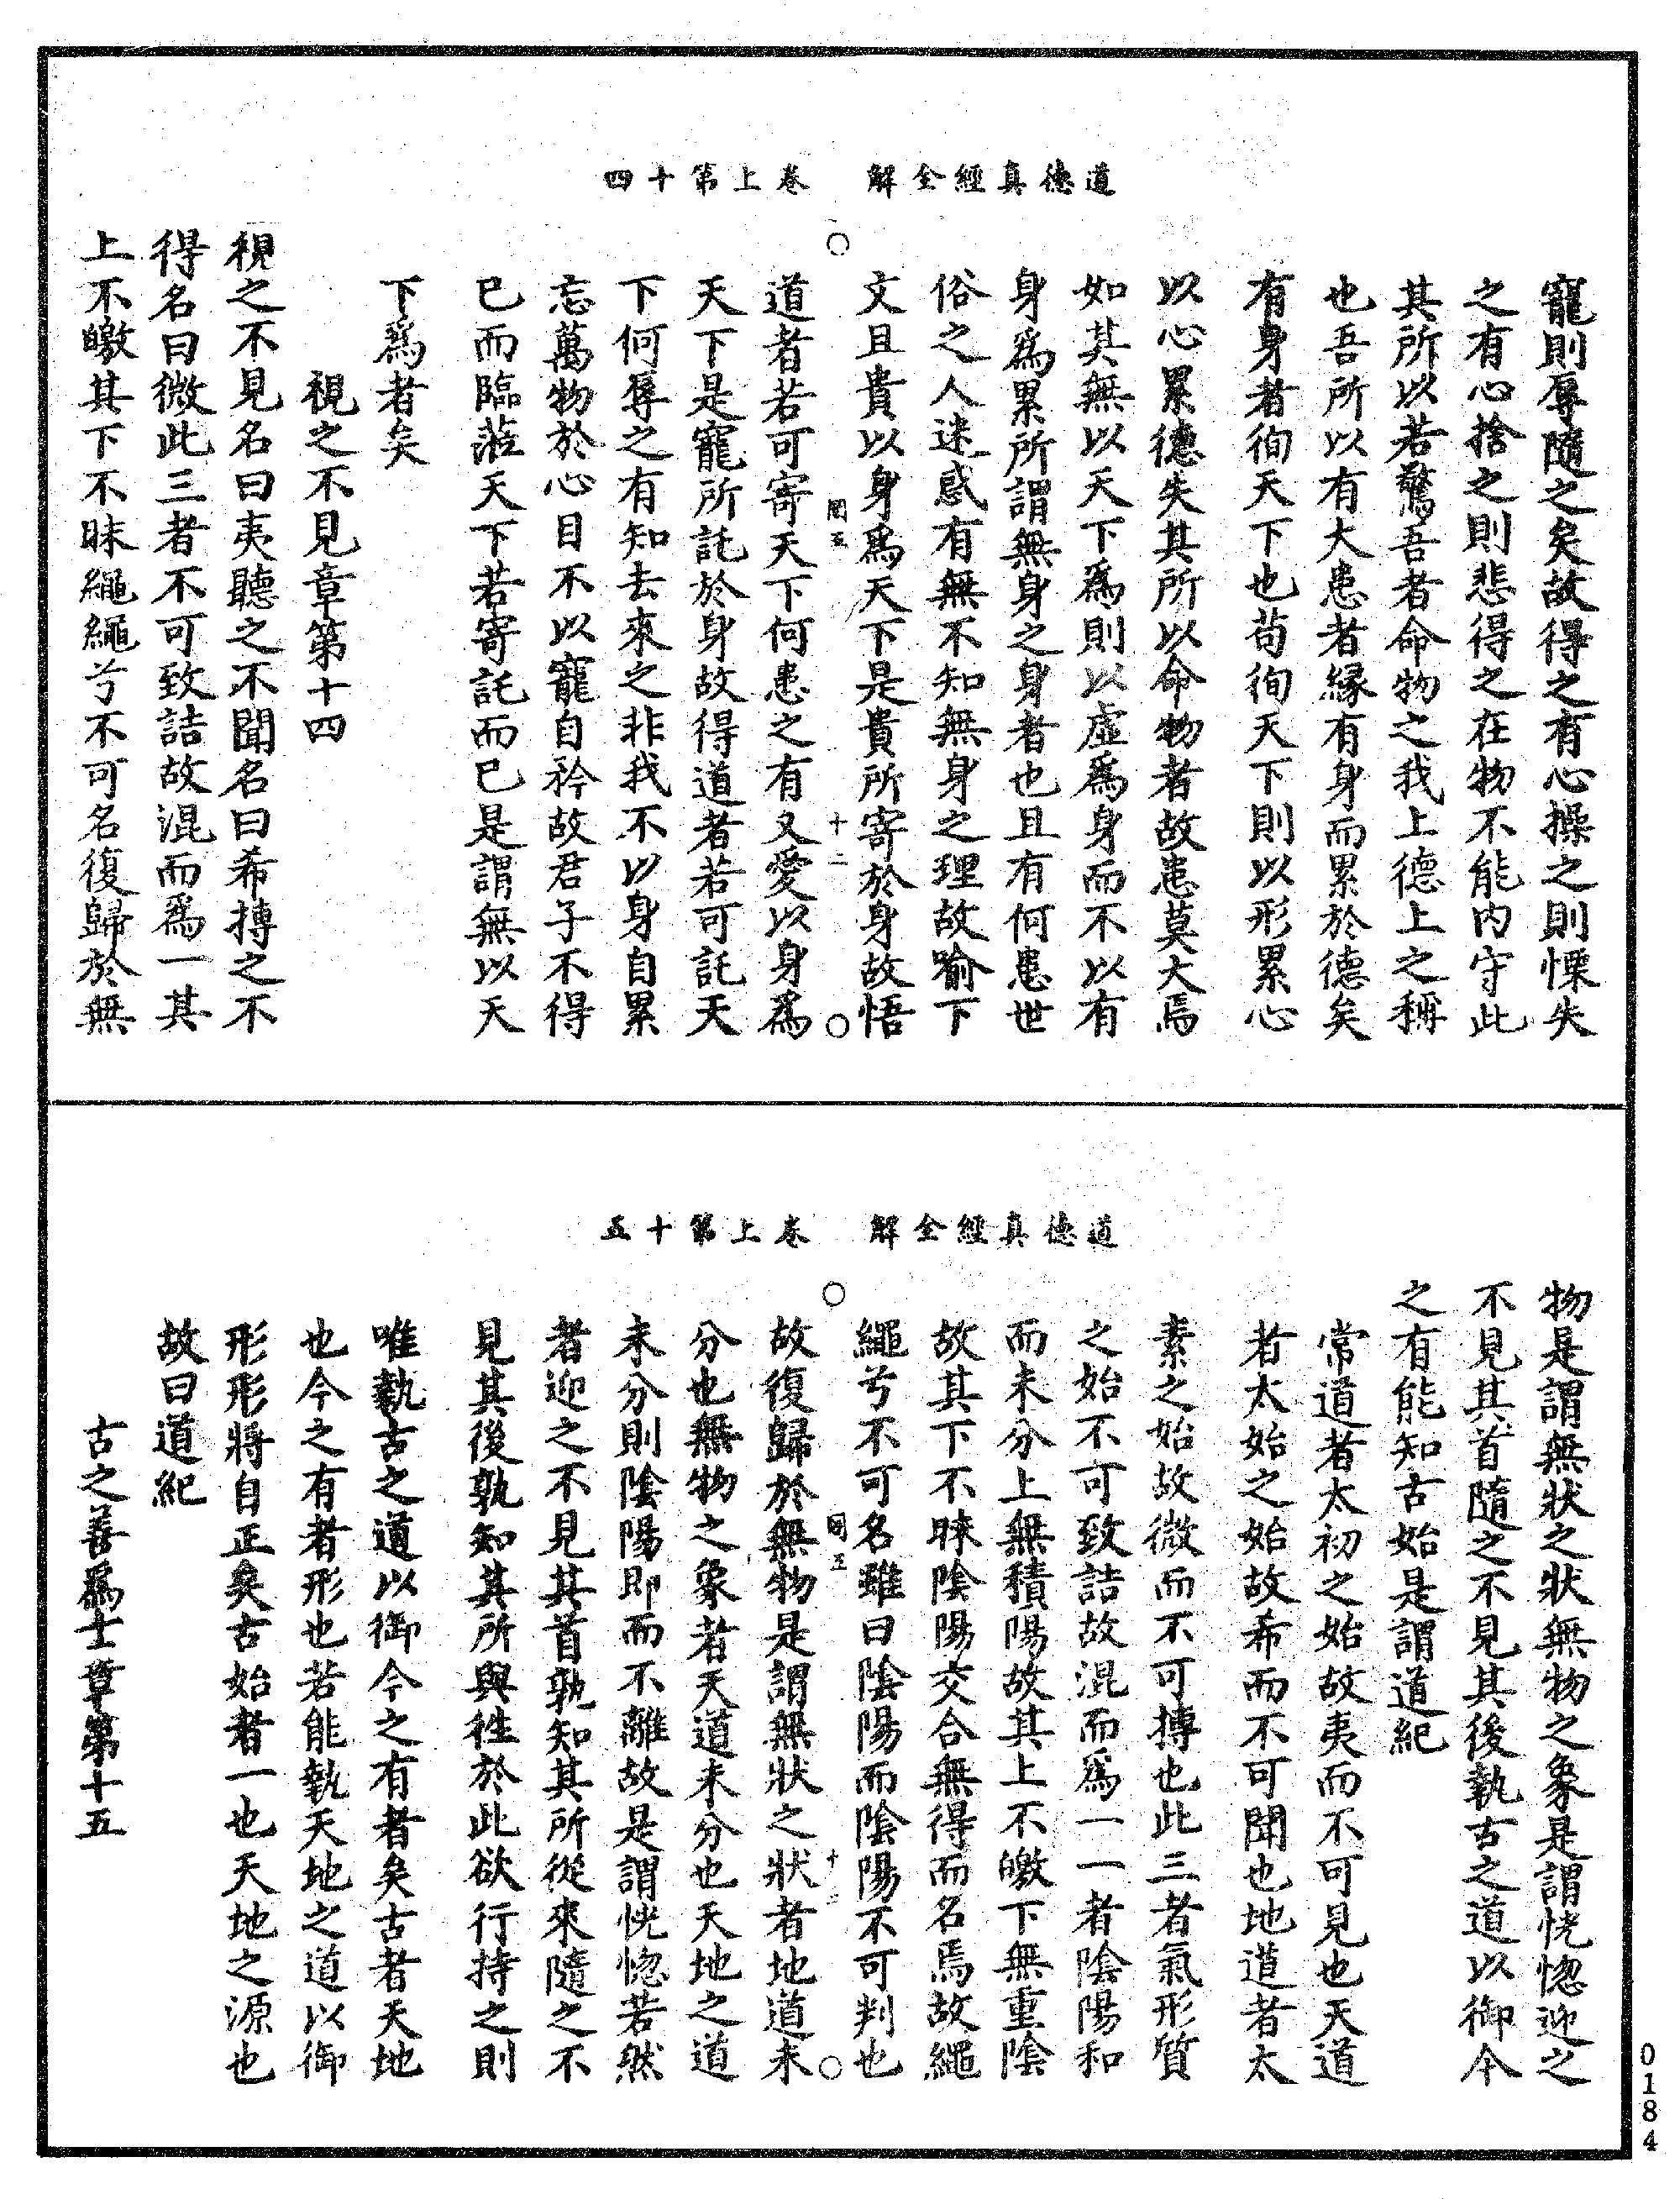 道德真經全解　卷上第十四
寵則辱隨之矣故得之有心操之則慄失
之有心捨之則悲得之在物不能內守此
其所以若驚吾者命物之我上德上之稱
也吾所以有大患者緣有身而累於德矣
有身者徇天下也苟徇天下則以形累心
以心累德失其所以命物者故患莫大焉
如其無以天下為則以虛為身而不以有
身為累所謂無身之身者也且有何患世
俗之人迷惑有無不知無身之理故喻下
文且貴以身為天下是貴所寄於身故悟
〇
十二
〇
道者若可寄天下何患之有又愛以身為
天下是寵所託於身故得道者若可託天
下何辱之有知去來之非我不以身自累
忘萬物於心目不以寵自矜故君子不得
已而臨蒞天下若寄託而已是謂無以天
下為者矣
視之不見章第十四
視之不見名曰夷聽之不聞名曰希搏之不
得名曰微此三者不可致詰故混而為一其
上不皦其下不昧繩繩兮不可名復歸於無
道德真經全解　卷上第十五
物是謂無狀之狀無物之象是謂恍惚迎之
不見其首隨之不見其後執古之道以御今
之有能知古始是謂道紀
常道者太初之始故夷而不可見也天道
者太始之始故希而不可聞也地道者太
素之始故微而不可搏也此三者氣形質
之始不可致詰故混而為一一者陰陽和
而未分上無積陽故其上不皦下無重陰
故其下不昧陰陽交合無得而名焉故繩
繩兮不可名雖曰陰陽而陰陽不可判也
〇
〇
故復歸於無物是謂無狀之狀者地道未
分也無物之象者天道未分也天地之道
未分則陰陽即而不離故是謂恍惚若然
者迎之不見其首孰知其所從來隨之不
見其後孰知其所與往於此欲行持之則
唯執古之道以御今之有者矣古者天地
也今之有者形也若能執天地之道以御
形形將自正矣古始者一也天地之源也
故曰道紀
古之善為士章第十五
0184